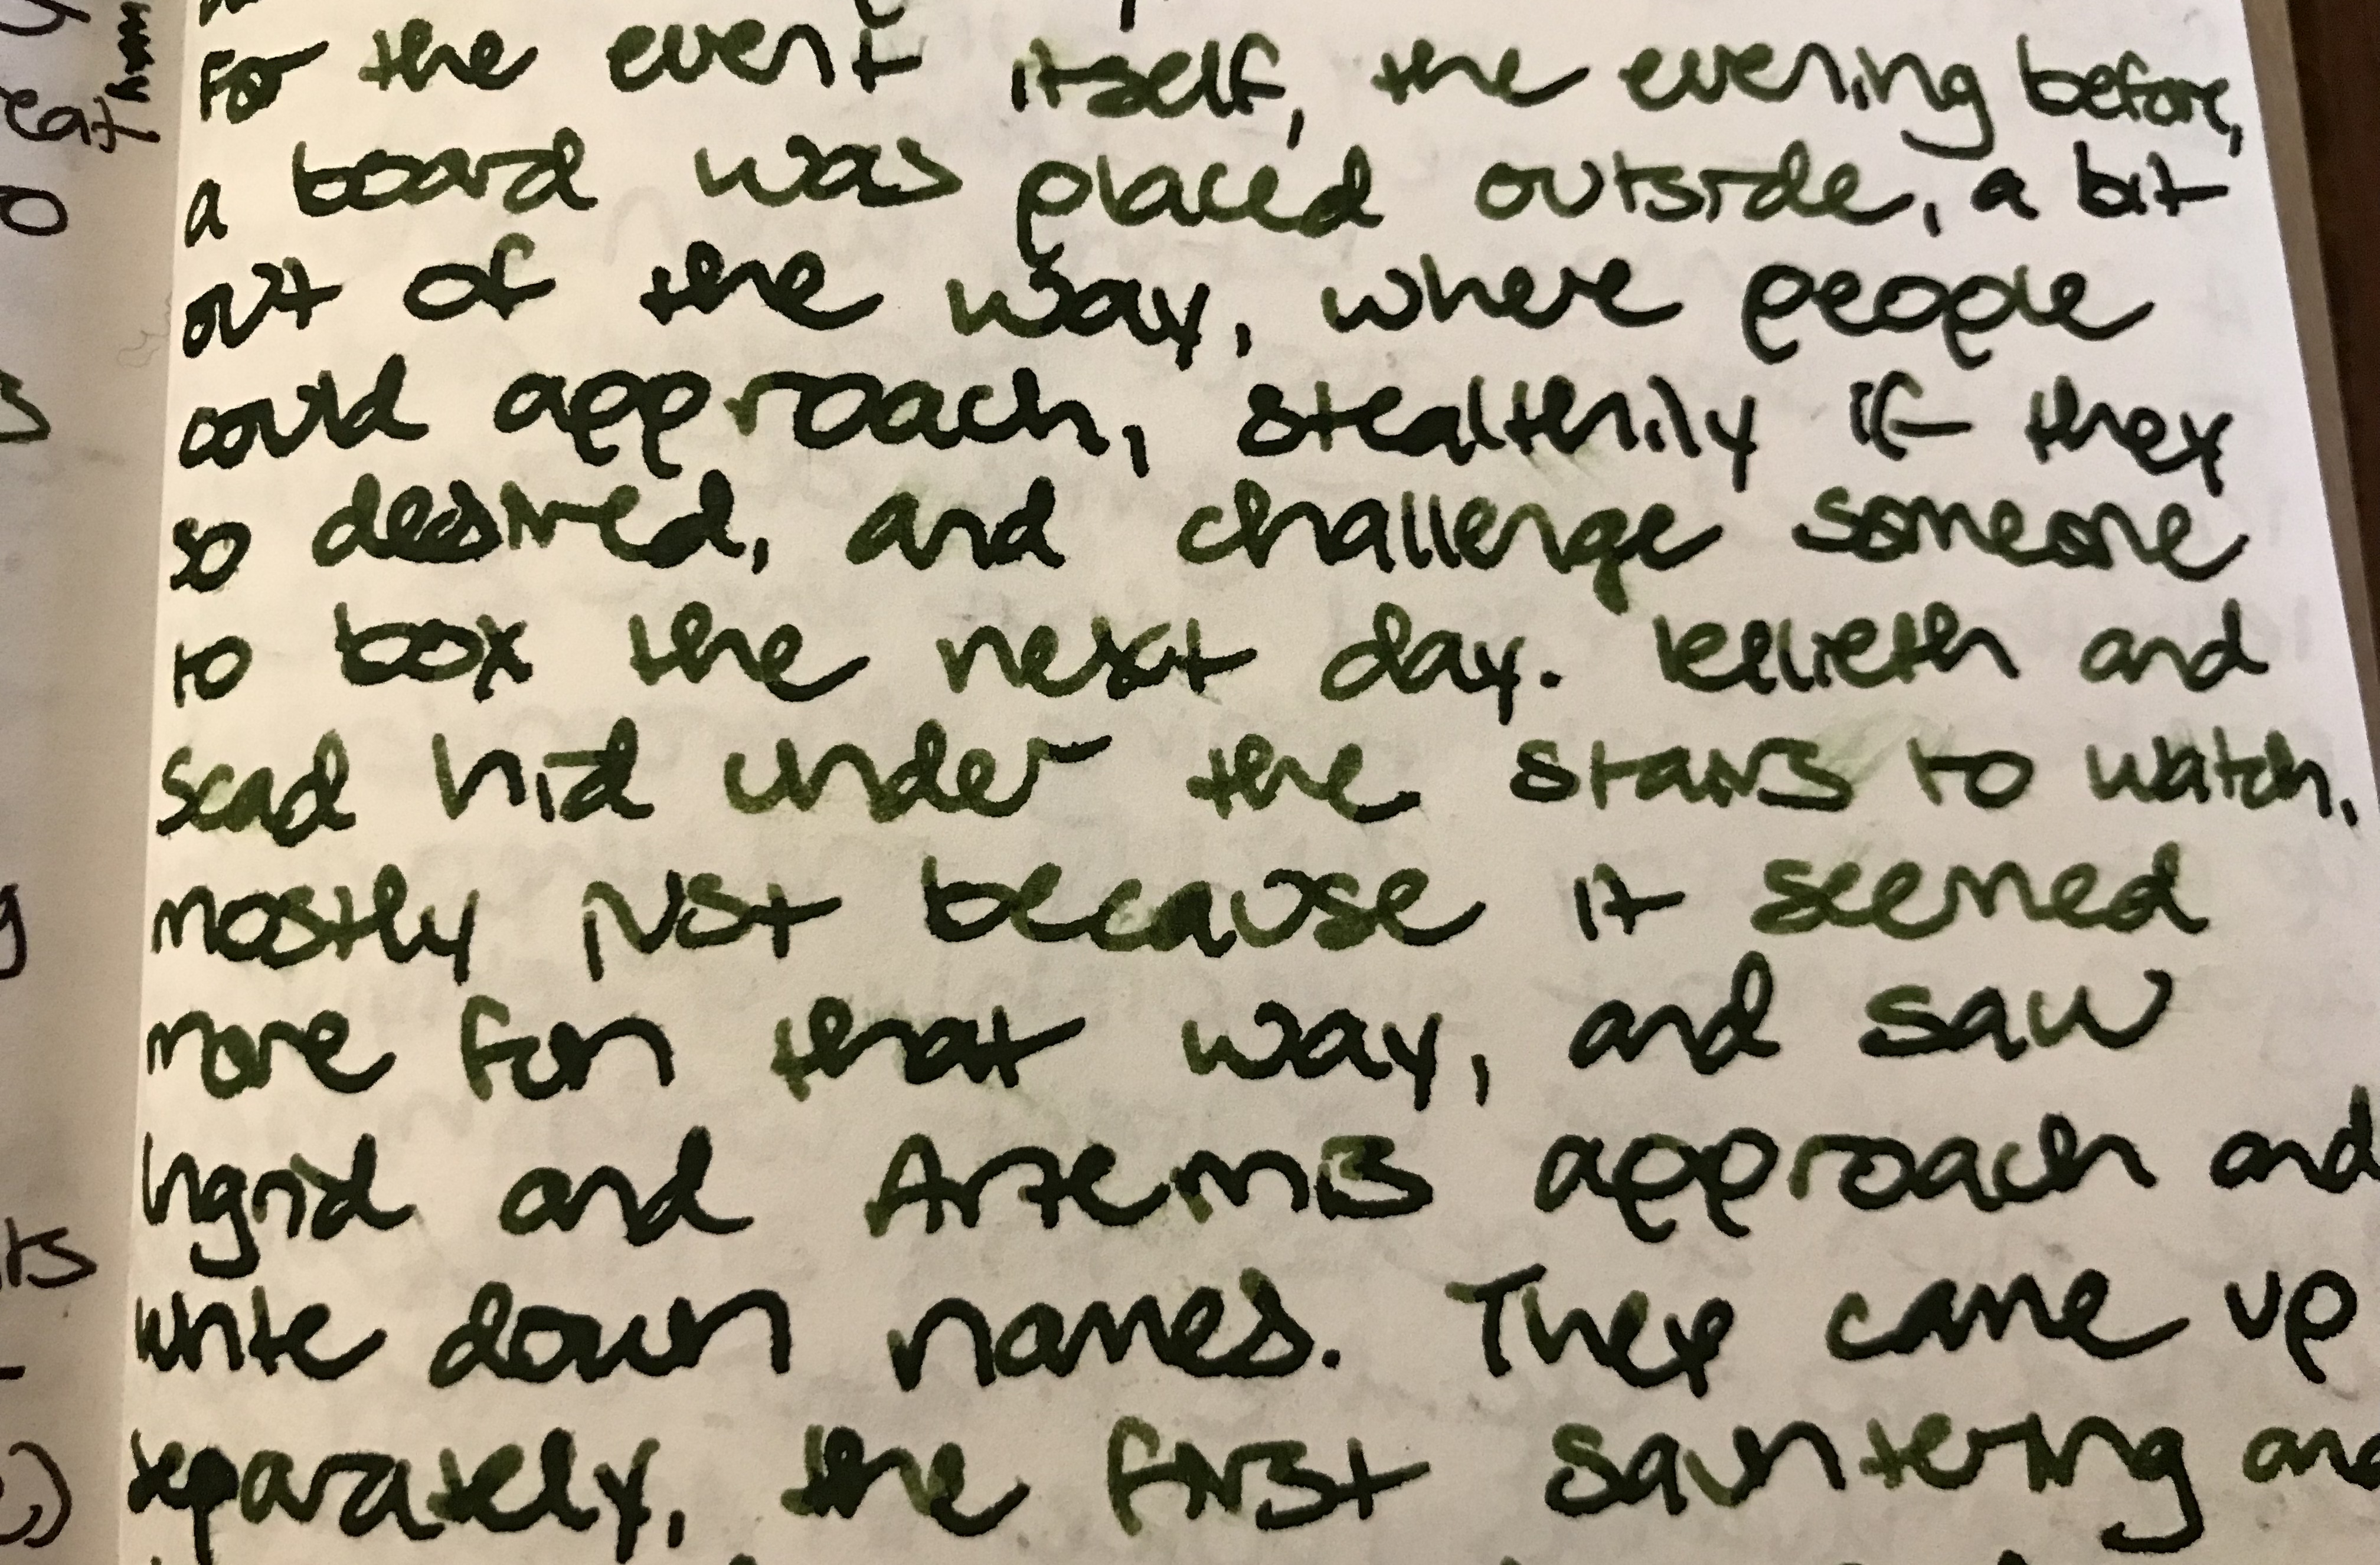 For the event itself, the evening before,
a board was placed outside, a bit
out of the way, where people
could approach, stealthily if they
so desired, and challenge someone
to box the next day. and
Scad hid under the stairs to watch,
mostly just because it seemed
more fun that way, and saw
Ingrid and Artemis approach and
write down names. They came up
separately, the first sauntering and